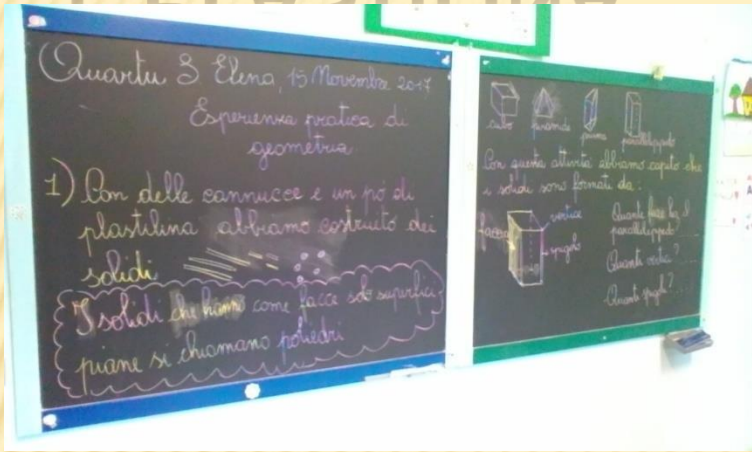 Quartu S Elena, 15 Novembre 2017
Esperienza pratica di
geometria
1) Con delle cannucce e un pó di
plastilina abbiamo costruito dei
solidi
I solidi che hanno come facce solo superfici
piane si chiamano poliedri
cubo piramide prisma parallelepipedo
Con questa attività abbiamo capito che
i solidi sono formati da:
faccia
vertice
spigolo
Quante facce ha il
parallelepipedo?
Quanti vertici?
Quanti spigoli?